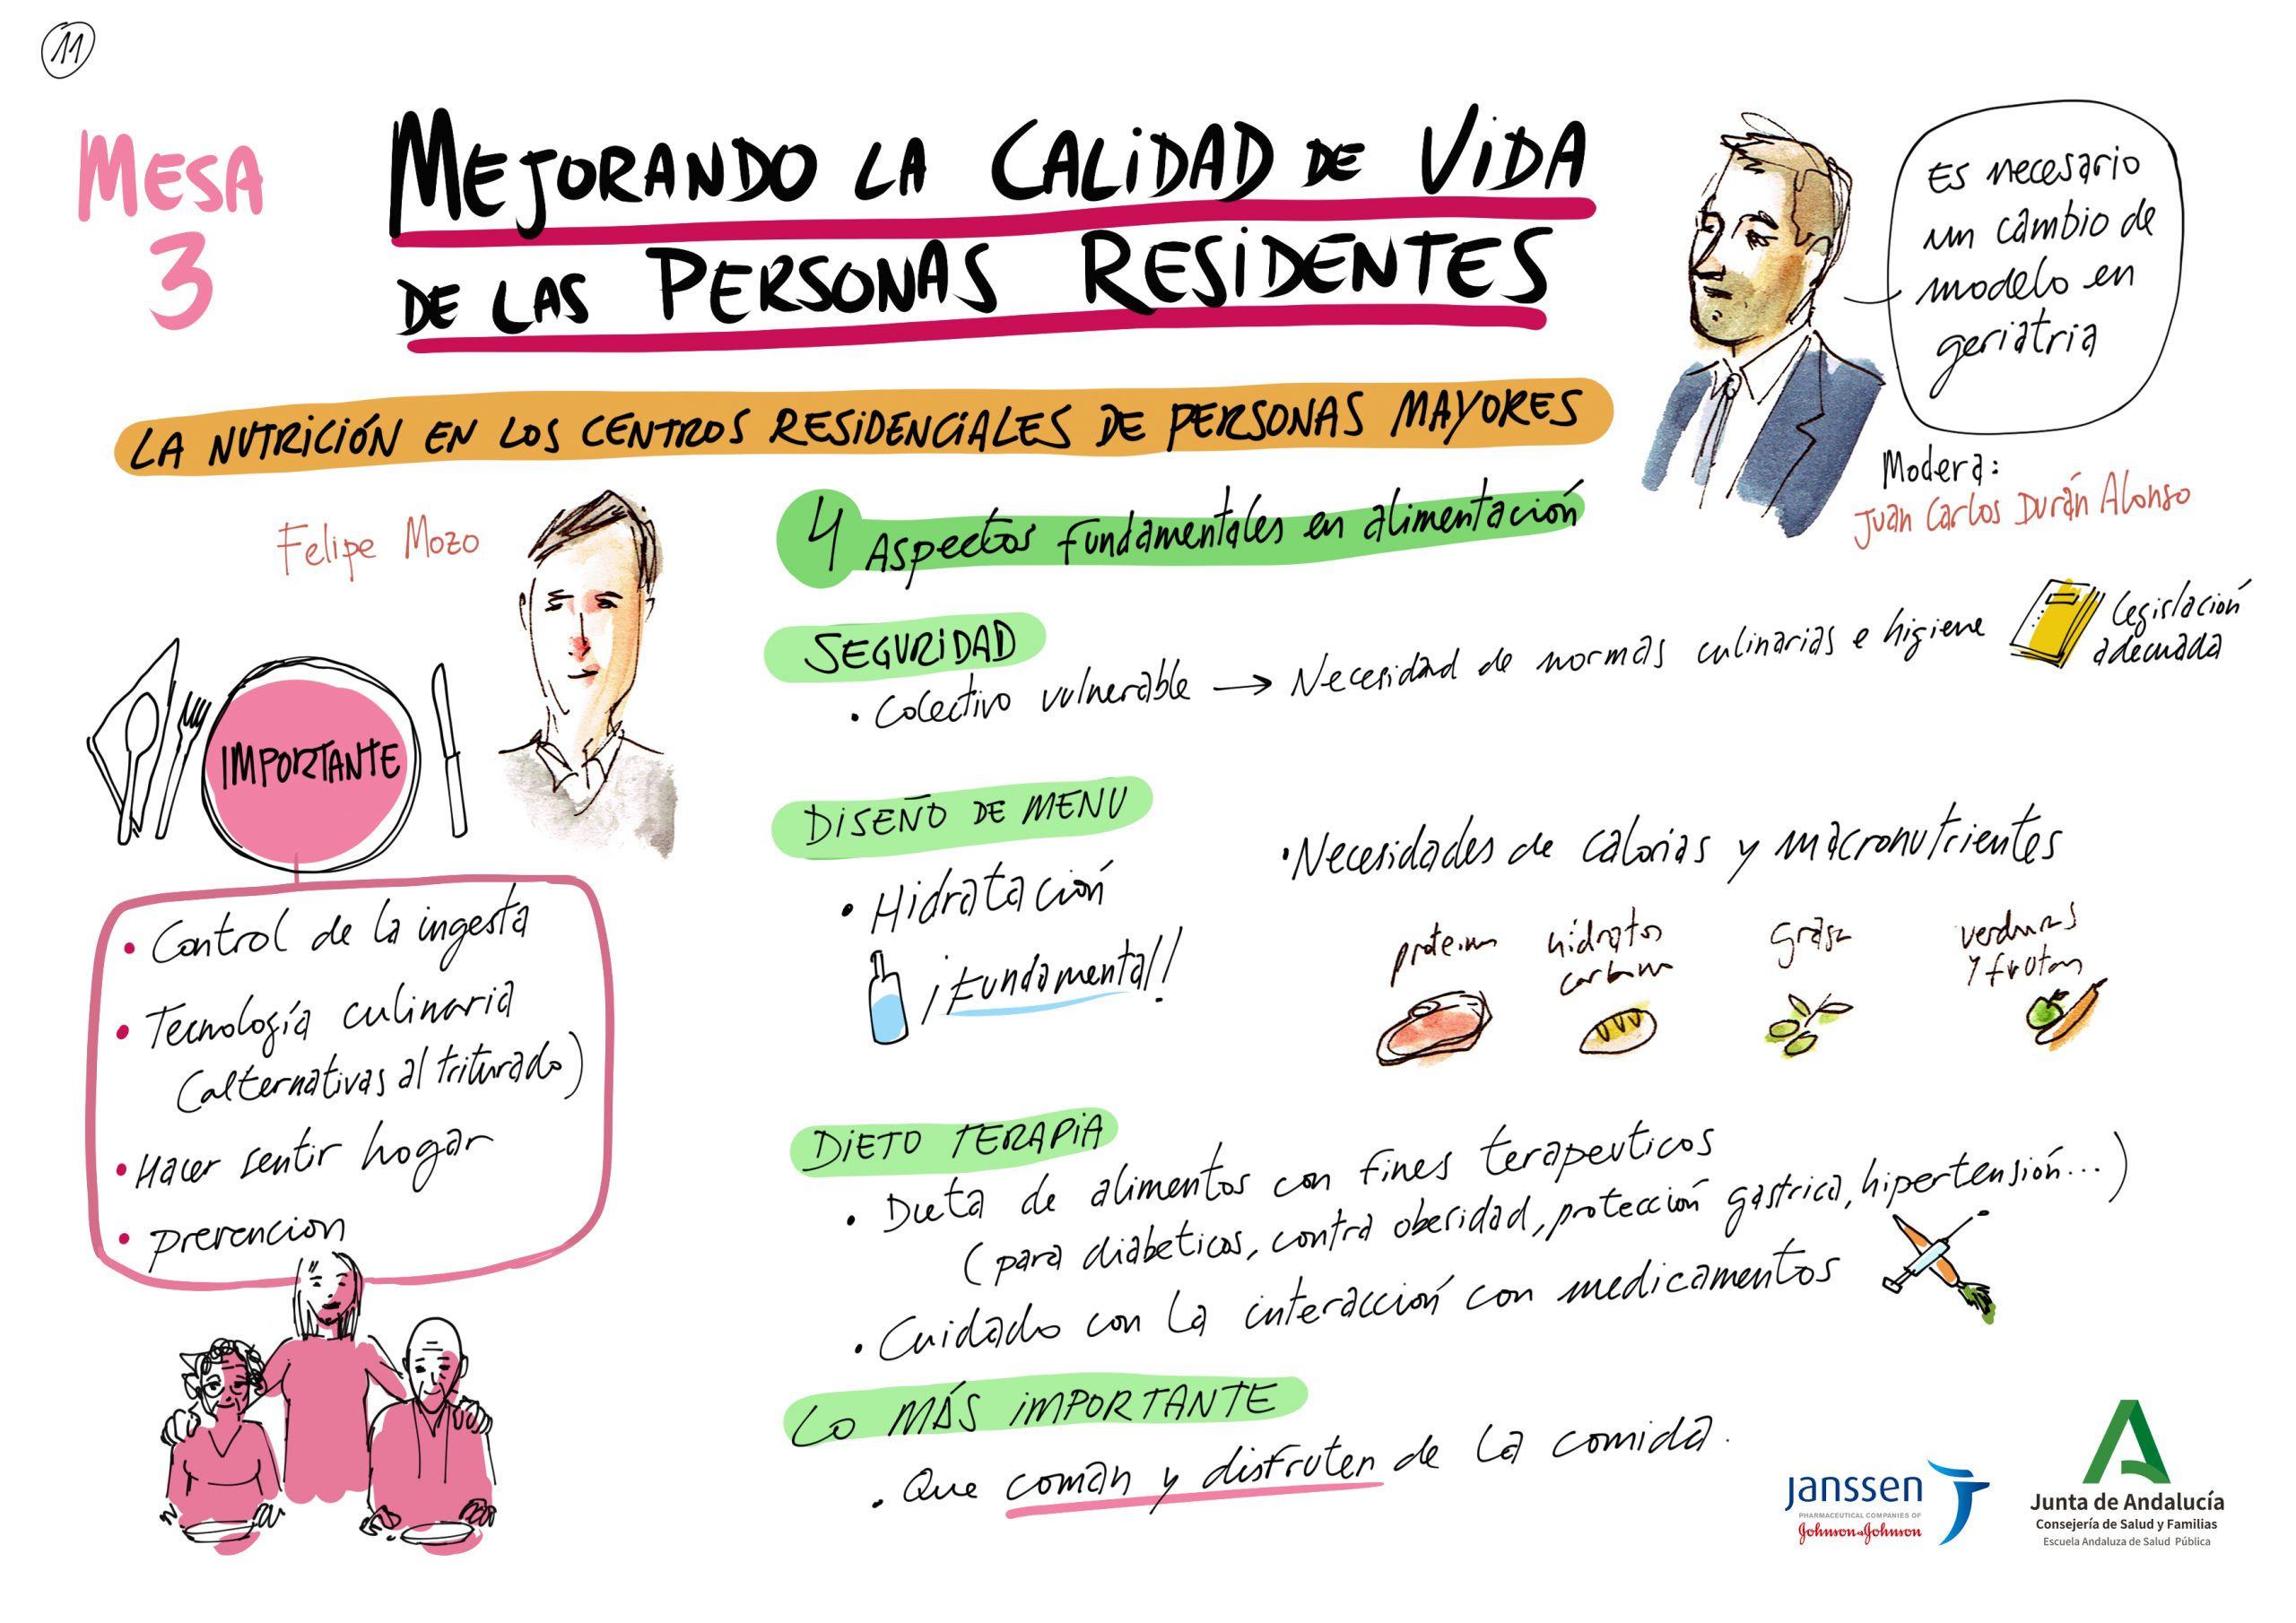 11
MESA
3
MEJORANDO LA CALIDAD DE VIDA
DE LAS PERSONAS RESIDENTES
Es necesario
un cambio de
modelo en
geriatria
Modera:
Juan Carlos Durán Alonso
LA NUTRICIÓN EN LOS CENTROS RESIDENCIALES DE PERSONAS MAYORES
Felipe Mozo
IMPORTANTE
• Control de la ingesta
• Tecnología culinaria
(alternativas al triturado)
• Hacer sentir hogar
• prevencion
4 Aspectos fundamentales en alimentación
SEGURIDAD
• Colectivo vulnerable → Necesidad de normas culinarias e higiene
Legislación
adecuada
DISEÑO DE MENU
• Hidratación
¡Fundamental!
• Necesidades de calorias y macronutrientes
proteinas
hidratos
carbono
grasa
verduras
y frutas
DIETO TERAPIA
• Dieta de alimentos con fines terapeuticos
(para diabeticos, contra obesidad, protección gastrica, hipertensión...)
• Cuidado con la interacción con medicamentos
LO MÁS IMPORTANTE
• Que coman y disfruten de la comida.
janssen
PHARMACEUTICAL COMPANIES OF
Johnson & Johnson
Junta de Andalucía
Consejería de Salud y Familias
Escuela Andaluza de Salud Pública